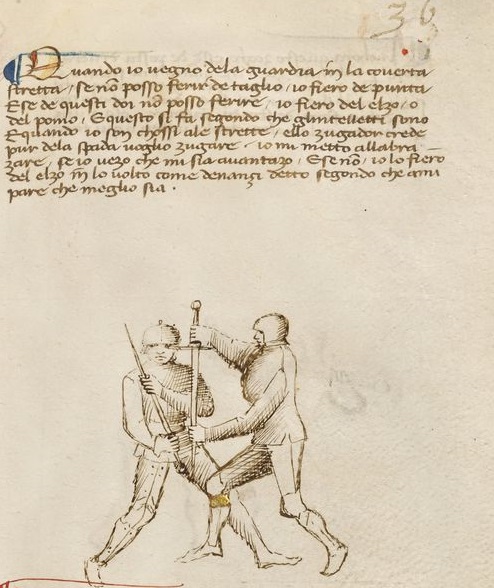 36
Quando io vegno dela guardia in la coverta
stretta / se nõ posso ferir de taglio / io fiero de punta
E se de questi doi nõ posso ferire / io fiero del elzo / o
del pomo / E questo si fa segondo che gl'intelletti sono
E quando io son chossi ale strette / ello zugador crede
pur dela spada voglio zugare / io mi metto al labra–
zare / se io vezo che mi sia avantazo / E se nõ / io lo fiero
del elzo in lo volto come denanzi detto segondo che a mi
pare che meglio sia .